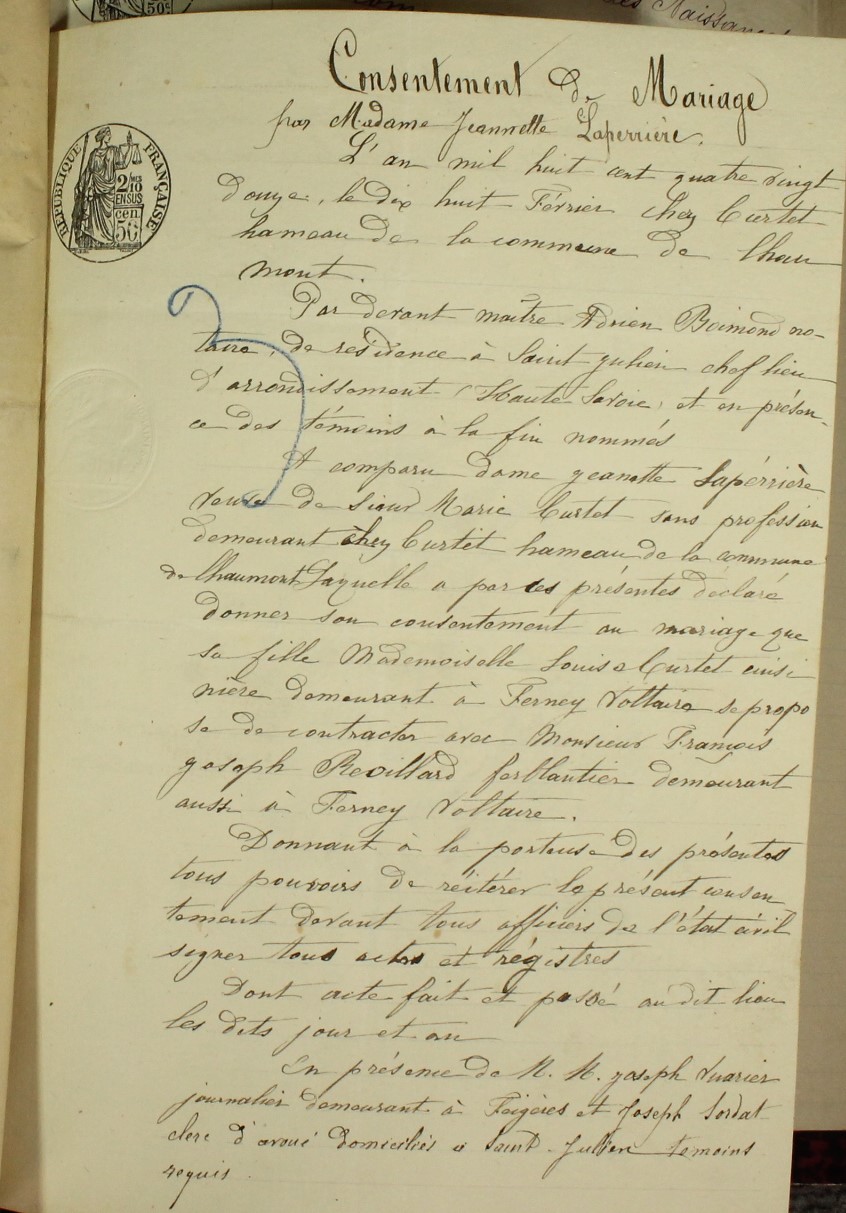 50c
des Naissances
Consentement de Mariage
par Madame Jeannette Laperrière.
RÉPUBLIQUE FRANÇAISE
2/10 EN SUS
50 cen
L'an mil huit cent quatre vingt
douze, le dix huit Février chez Curtet
hameau de la commune de Chau
mont.
Par devant maître Adrien Boimond no-
taire, de résidence à Saint Julien chef lieu
d'arrondissement (Haute Savoie) et en présen-
ce des témoins à la fin nommés
A comparu dame Jeanette Lapérrière
veuve de sieur Marie Curtet sans profession
demeurant chez Curtet hameau de la commune
de Chaumont Laquelle a par ces présentes déclaré
donner son consentement au mariage que
sa fille Mademoiselle Louise Curtet cuisi
nière demeurant à Ferney Voltaire se propo
se de contracter avec Monsieur François
Joseph Revillard ferblantier demeurant
aussi à Ferney Voltaire.
Donnant à la porteuse des présentes
tous pouvoirs de réitérer le présent consen
tement devant tous officiers de l'état civil
signer tous actes et régistres
Dont acte fait et passé au dit lieu
les dits jour et an
En présence de M. M. Joseph Vuarier
journalier demeurant à Feigères et Joseph Sordat
clerc d'avoué domiciliés à Saint-Julien temoins
requis.